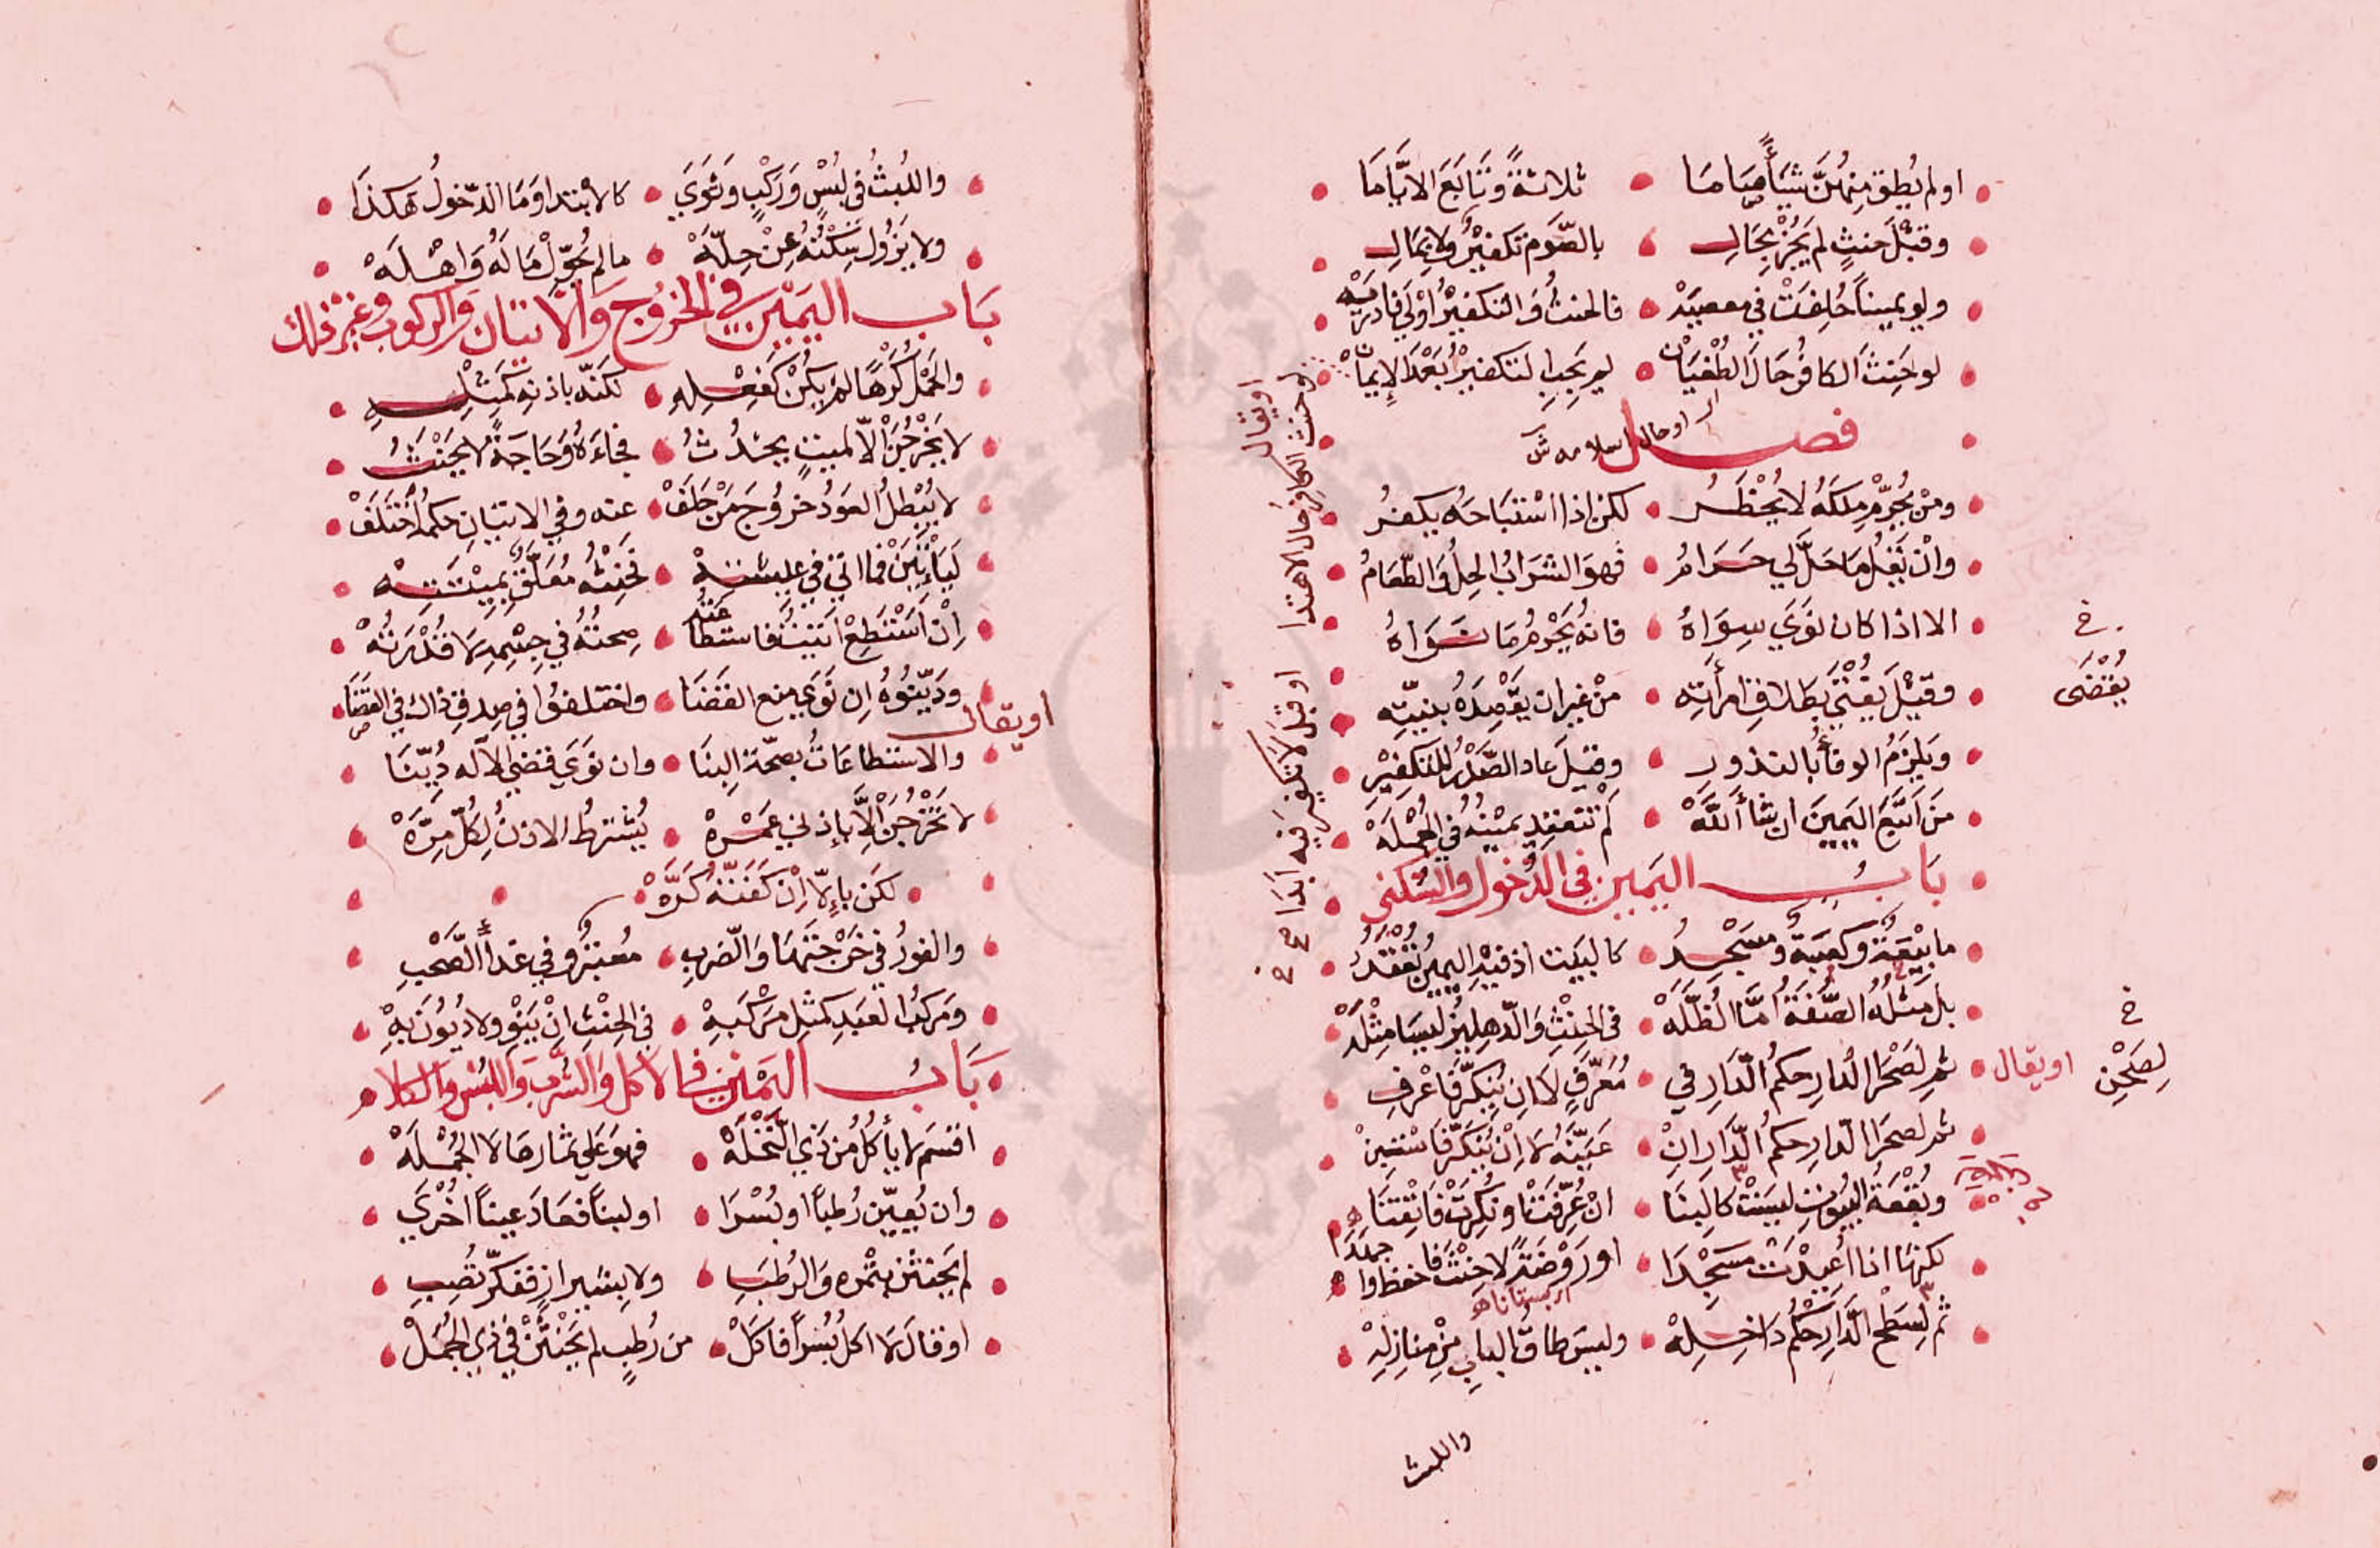 اولم يُطق منهنّ شيأً صاما • ثلاثةً وتابَعَ الايّاما
وقبْلَ حنثٍ لم يَجُزْ بحالِ • بالصّوم تكفيرٌ ولا بمالِ
ولو يميناً حُلِفَتْ في معصيَهْ • فالحنثُ والتكفيرُ اوْلى فادريَهْ
لو حَنِثَ الكافرُ حالَ الطُغْيانْ • لم يَجِبِ التكفيرُ بَعْدَ الإيمانْ
فصل
او حال اسلامه ش
ومنْ يُحرِّمْ مِلكَهُ لا يُحْظَرُ • لكن اذا اسْتباحَهُ يكفرُ
وانْ يَقُلْ ما حَلَّ لي حَرامُ • فهوَ الشرابُ الحِلُّ والطّعامُ
الا اذا كان نوَى سِوَاهُ • فانه يَحْرمُ ما نَوَاهُ
وقيْلَ يُفْتى بطلاقِ امرأتِه • منْ غيران يقْصِدَهُ بنيّتِه
خ
يُقْضَى
ويَلزَمُ الوفأُ بالنذورِ • وقيلَ عادَ الصّدْرُ للتكفيْرِ
مَنْ اَتْبَعَ اليَمينَ ان شأ اللّهْ • لم تنعقد يمينُهُ في الجُمْلَهْ
بابُ اليَمين في الدُّخول والسُّكنى
ما بيْعَةٌ وكعبَةٌ ومسْجِدُ • كالبَيت اذ فيهِ اليمينُ تُعْقَدُ
بل مِثلُهُ الصُّفّةُ امّا الظُّلّهْ • في الحِنْثِ والدّهليزُ ليسا مِثْلَهْ
ثم لصَحْرَا الدار حكمُ الدّارِ في • مُعَرَّفٍ لا ان يُنكَّرْ فاعْرفِ
او يقال
خ
لِصَحْنِ
ثم لصحرا الدار حكمُ الدّارِ انْ • عَيّنَهُ لا اِنْ يُنَكَّرْ فاسْتبِنْ
وبُقْعَةُ البُيُوتِ ليسَتْ كالبِنا • انْ عُرِّفَتْ او نُكِرَتْ فاتْقِنَا
لكنّها اذا اُعِيْدَتْ مَسْجِدَا • او رَوْضَةً لا حِنْثَ فاحفظوا
ثم لِسَطْحِ الدّارِ حُكْمُ داخِلِهْ • وليسَ طاقُ البابِ مِنْ منازِلِهْ
او يقال
لو حنث الكافر حال الاهتدا او قبلُ لا تكفير فيه ابدا صح خ
واللبث
واللُبثُ في لُبْسٍ ورَكْبٍ وثَوَي • كالابْتدا وما الدّخولُ هكذَا
ولا يَزُولُ سَكْنُهُ عِنْ حِلّهْ • ما لم يُحَوِّلْ مَا لَهُ وَاهْلَهْ
بَاب اليَمِيْن في الخرُوج وَالاتيَان وَالركوب وغيْر ذلك
والحَمْل كُرْهًا لم يكُنْ كفِعْلِهِ • لكنّه باذنِهِ كمِثْلِهِ
لا يَخْرُجَنْ الّا لميتٍ يحدُثُ • فجاءَهُ وحَاجَةً لا يَحْنَثُ
لا يُبْطِلُ العَوْدُ خرُوجَ مَنْ حَلَفْ • عنه وفي الاتيانِ حكمُهُ اختَلَفْ
لَيَأْتِيَنْ فما اتى في عِيشتِهْ • فحِنْثُه مُعَلَّقٌ بمِيْتَتِهْ
اِنْ اَسْتطِعْ اَتيْتُهُ فاستطاعَتُهْ • صِحتُهُ في جِسْمِهِ لا قُدْرَتُهْ
وديّنُوهُ اِن نوَى منع القضَا • واختلفُوا في صِدقِ ذاكَ في القضَا
او يقال
والاستطاعَاتُ بصحّة البنَا • وان نوَى قضى الاله دُيّنَا
لا تَخْرُجَنْ اِلّا بإذني عَمْرهْ • يُشْترطُ الاذنُ لكلِّ مرَّهْ
لكن بإلّا اِنْ كفَتهُ كَرَّهْ
والفورُ في خَرْجتِها والضربِ • مُعتبَرٌ وفي غداً الصَّحْبِ
ومَركبُ العَبَدِ كمثلِ مَرْكَبِهْ • في الحِنْثِ اِنْ يَنْوِ ولا ديُونَ بِهْ
بَابُ اليَمْين في الاكل والشُّرب وَاللبْس والكلام
اقسَم لا يأكلُ من ذي النّخْلَهْ • فهوَ على ثمارها لا الجُمْلَهْ
وان يُعيّن رُطباً او بُسْرَا • او لبناً فعَادَ عيناً اُخْرَي
لم يَحْنَثَنْ بتمْره والرُطَبِ • ولا بشيرازٍ ففكّرْ تُصِبِ
او قال لا اكلُ بُسْراً فاكلْ • من رُطبٍ لم يَحْنَثَنْ في ذي الجُمَلْ